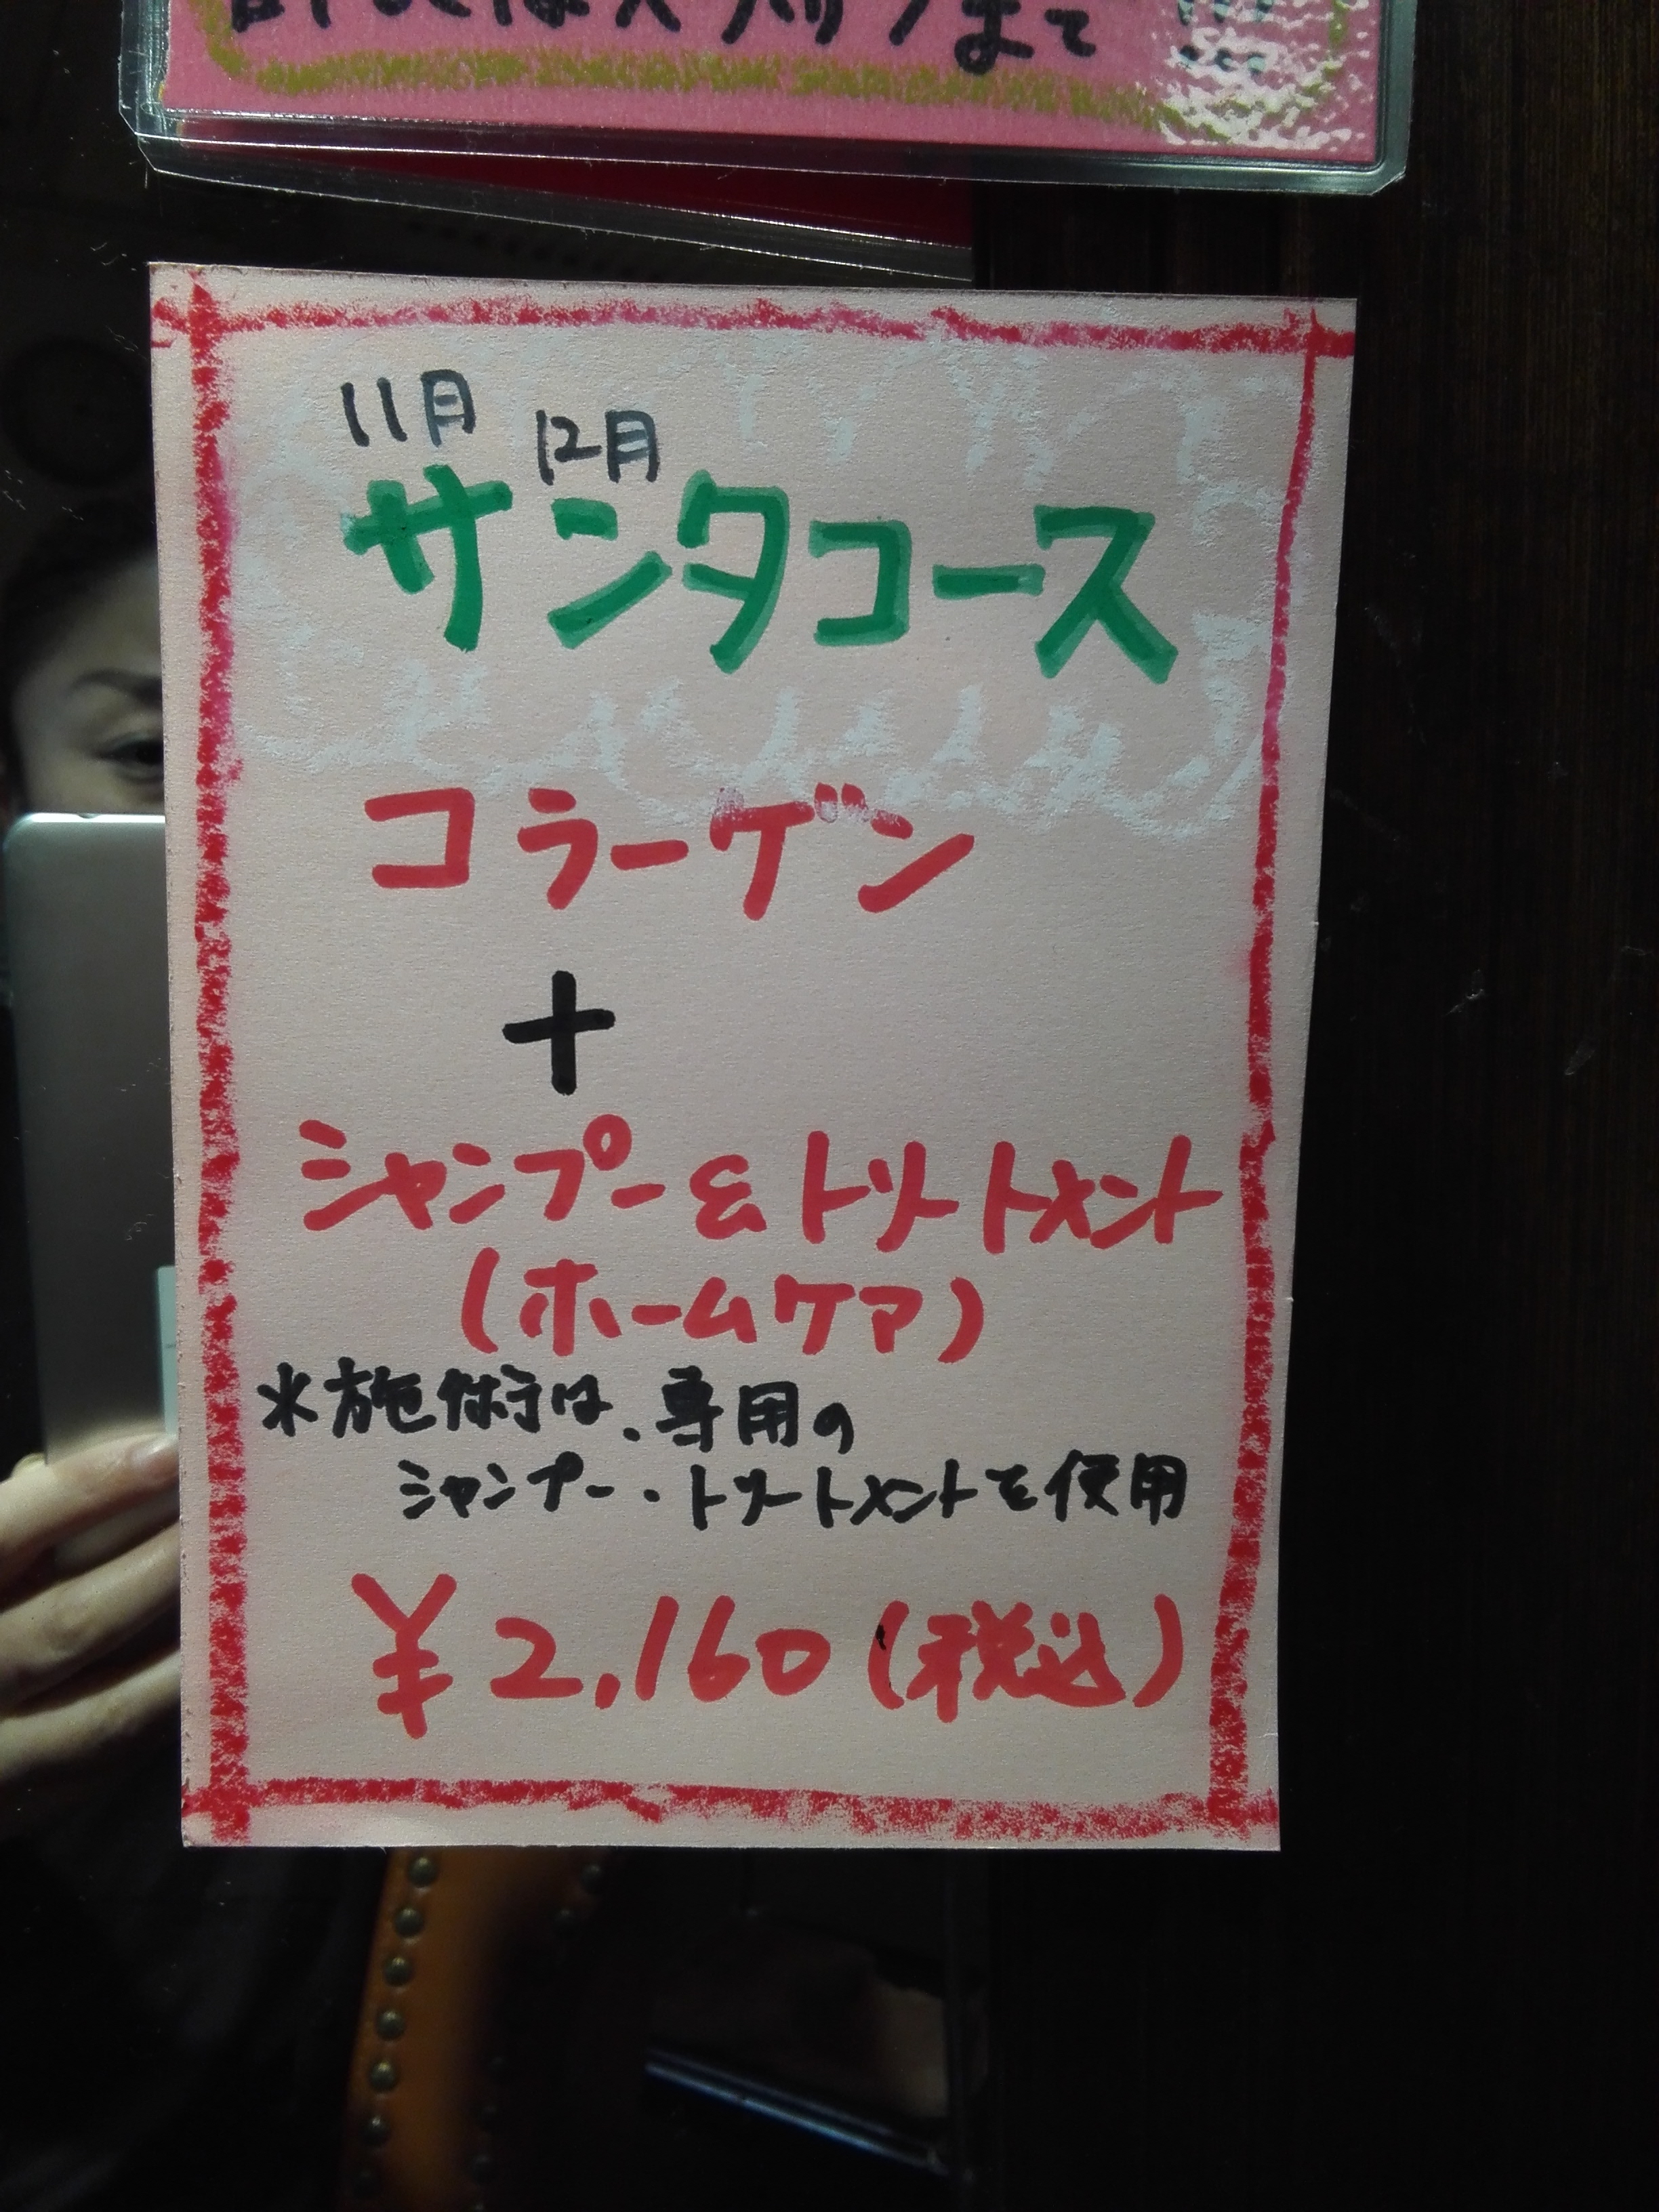 スタッフまで
11月 12月
サンタコース
コラーゲン
+
シャンプー&トリートメント
(ホームケア)
※施術は、専用の
シャンプー・トリートメントを使用
¥2,160(税込)